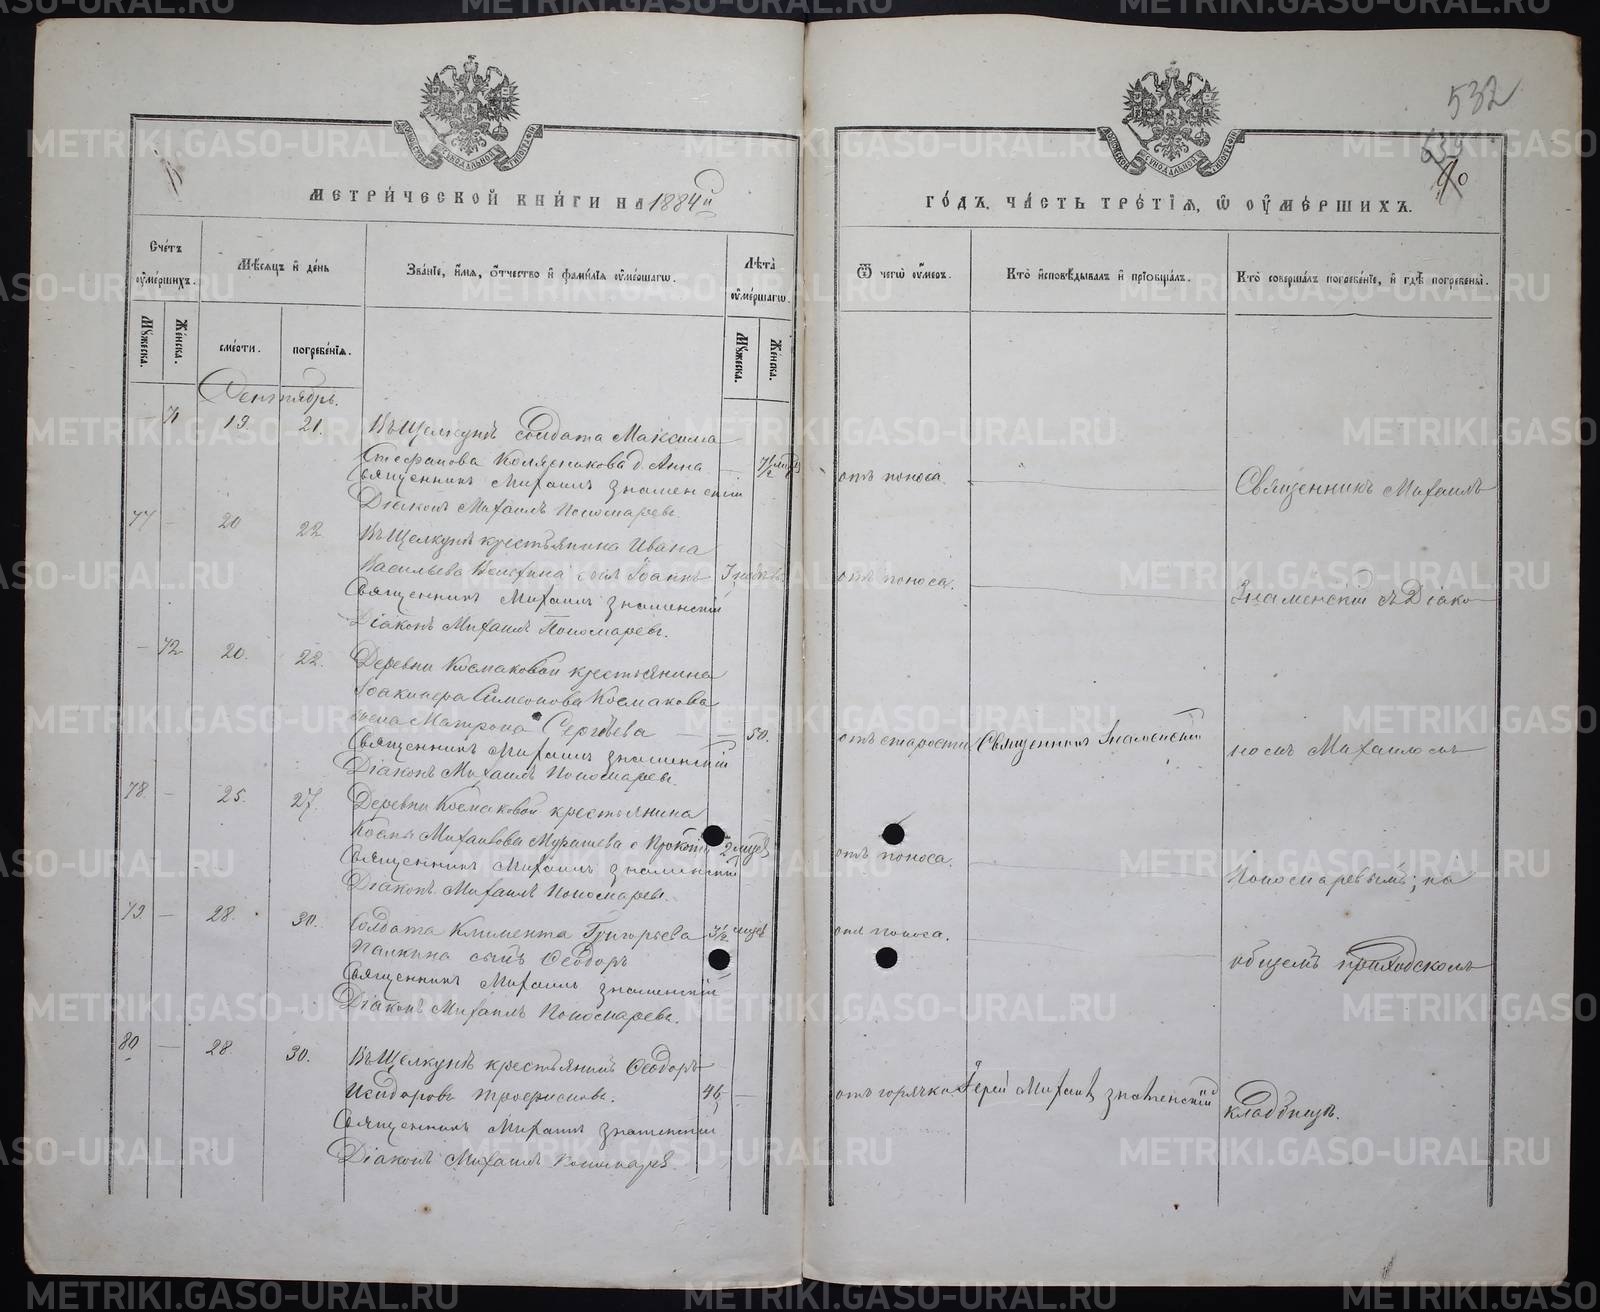 532
МЕТРИЧЕСКОЙ КНИГИ НА 1884й
ГОДЪ, ЧАСТЬ ТРЕТІЯ, Ѿ ОУМЕРШИХЪ.
Счетъ оумершихъ.
Мѣсяцъ и день
Званіе, имя, отчество и фамилія оумершагѡ.
Лѣта оумершагѡ.
Ѿ чегѡ оумеръ.
Кто исповѣдывалъ и пріобщалъ.
Кто совершалъ погребеніе, и гдѣ погребены.
Мужеска.
Женска.
смерти.
погребенія.
Мужеска.
Женска.
Сентябрь.
71 19. 21. Въ Щелкунѣ солдата Максима
Стефанова Колясникова д. Анна — 7½
Священникъ Михаилъ Знаменскій
Діаконъ Михаилъ Пономаревъ.
отъ поноса.
Священникъ Михаилъ
77 — 20 22 Въ Щелкунѣ крестьянина Ивана
Васильева сынъ Іоаннъ
Священникъ Михаилъ Знаменскій
Діаконъ Михаилъ Пономаревъ.
отъ поноса.
Знаменскій съ Діако-
— 72 20. 22. Деревни Космаковой крестьянина
Симеонова Космакова
жена Матрона Сергѣева — — 50.
Священникъ Михаилъ Знаменскій
Діаконъ Михаилъ Пономаревъ.
отъ старости Священникъ Знаменскій
номъ Михаиломъ
78. — 25. 27. Деревни Космаковой крестьянина
Михайлова с. 2
Священникъ Михаилъ Знаменскій
Діаконъ Михаилъ Пономаревъ.
отъ поноса.
Пономаревымъ; на
79. — 28. 30. Солдата Климента Григорьева
Палкина сынъ Ѳеодоръ
Священникъ Михаилъ Знаменскій
Діаконъ Михаилъ Пономаревъ.
отъ поноса.
общемъ приходскомъ
80 — 28. 30. Въ Щелкунѣ крестьянинъ Ѳеодоръ
Исидоровъ Трофимовъ. 46 —
Священникъ Михаилъ Знаменскій
Діаконъ Михаилъ Пономаревъ.
отъ горячки. Іерей Михаилъ Знаменскій
кладбищѣ.
METRIKI.GASO-URAL.RU